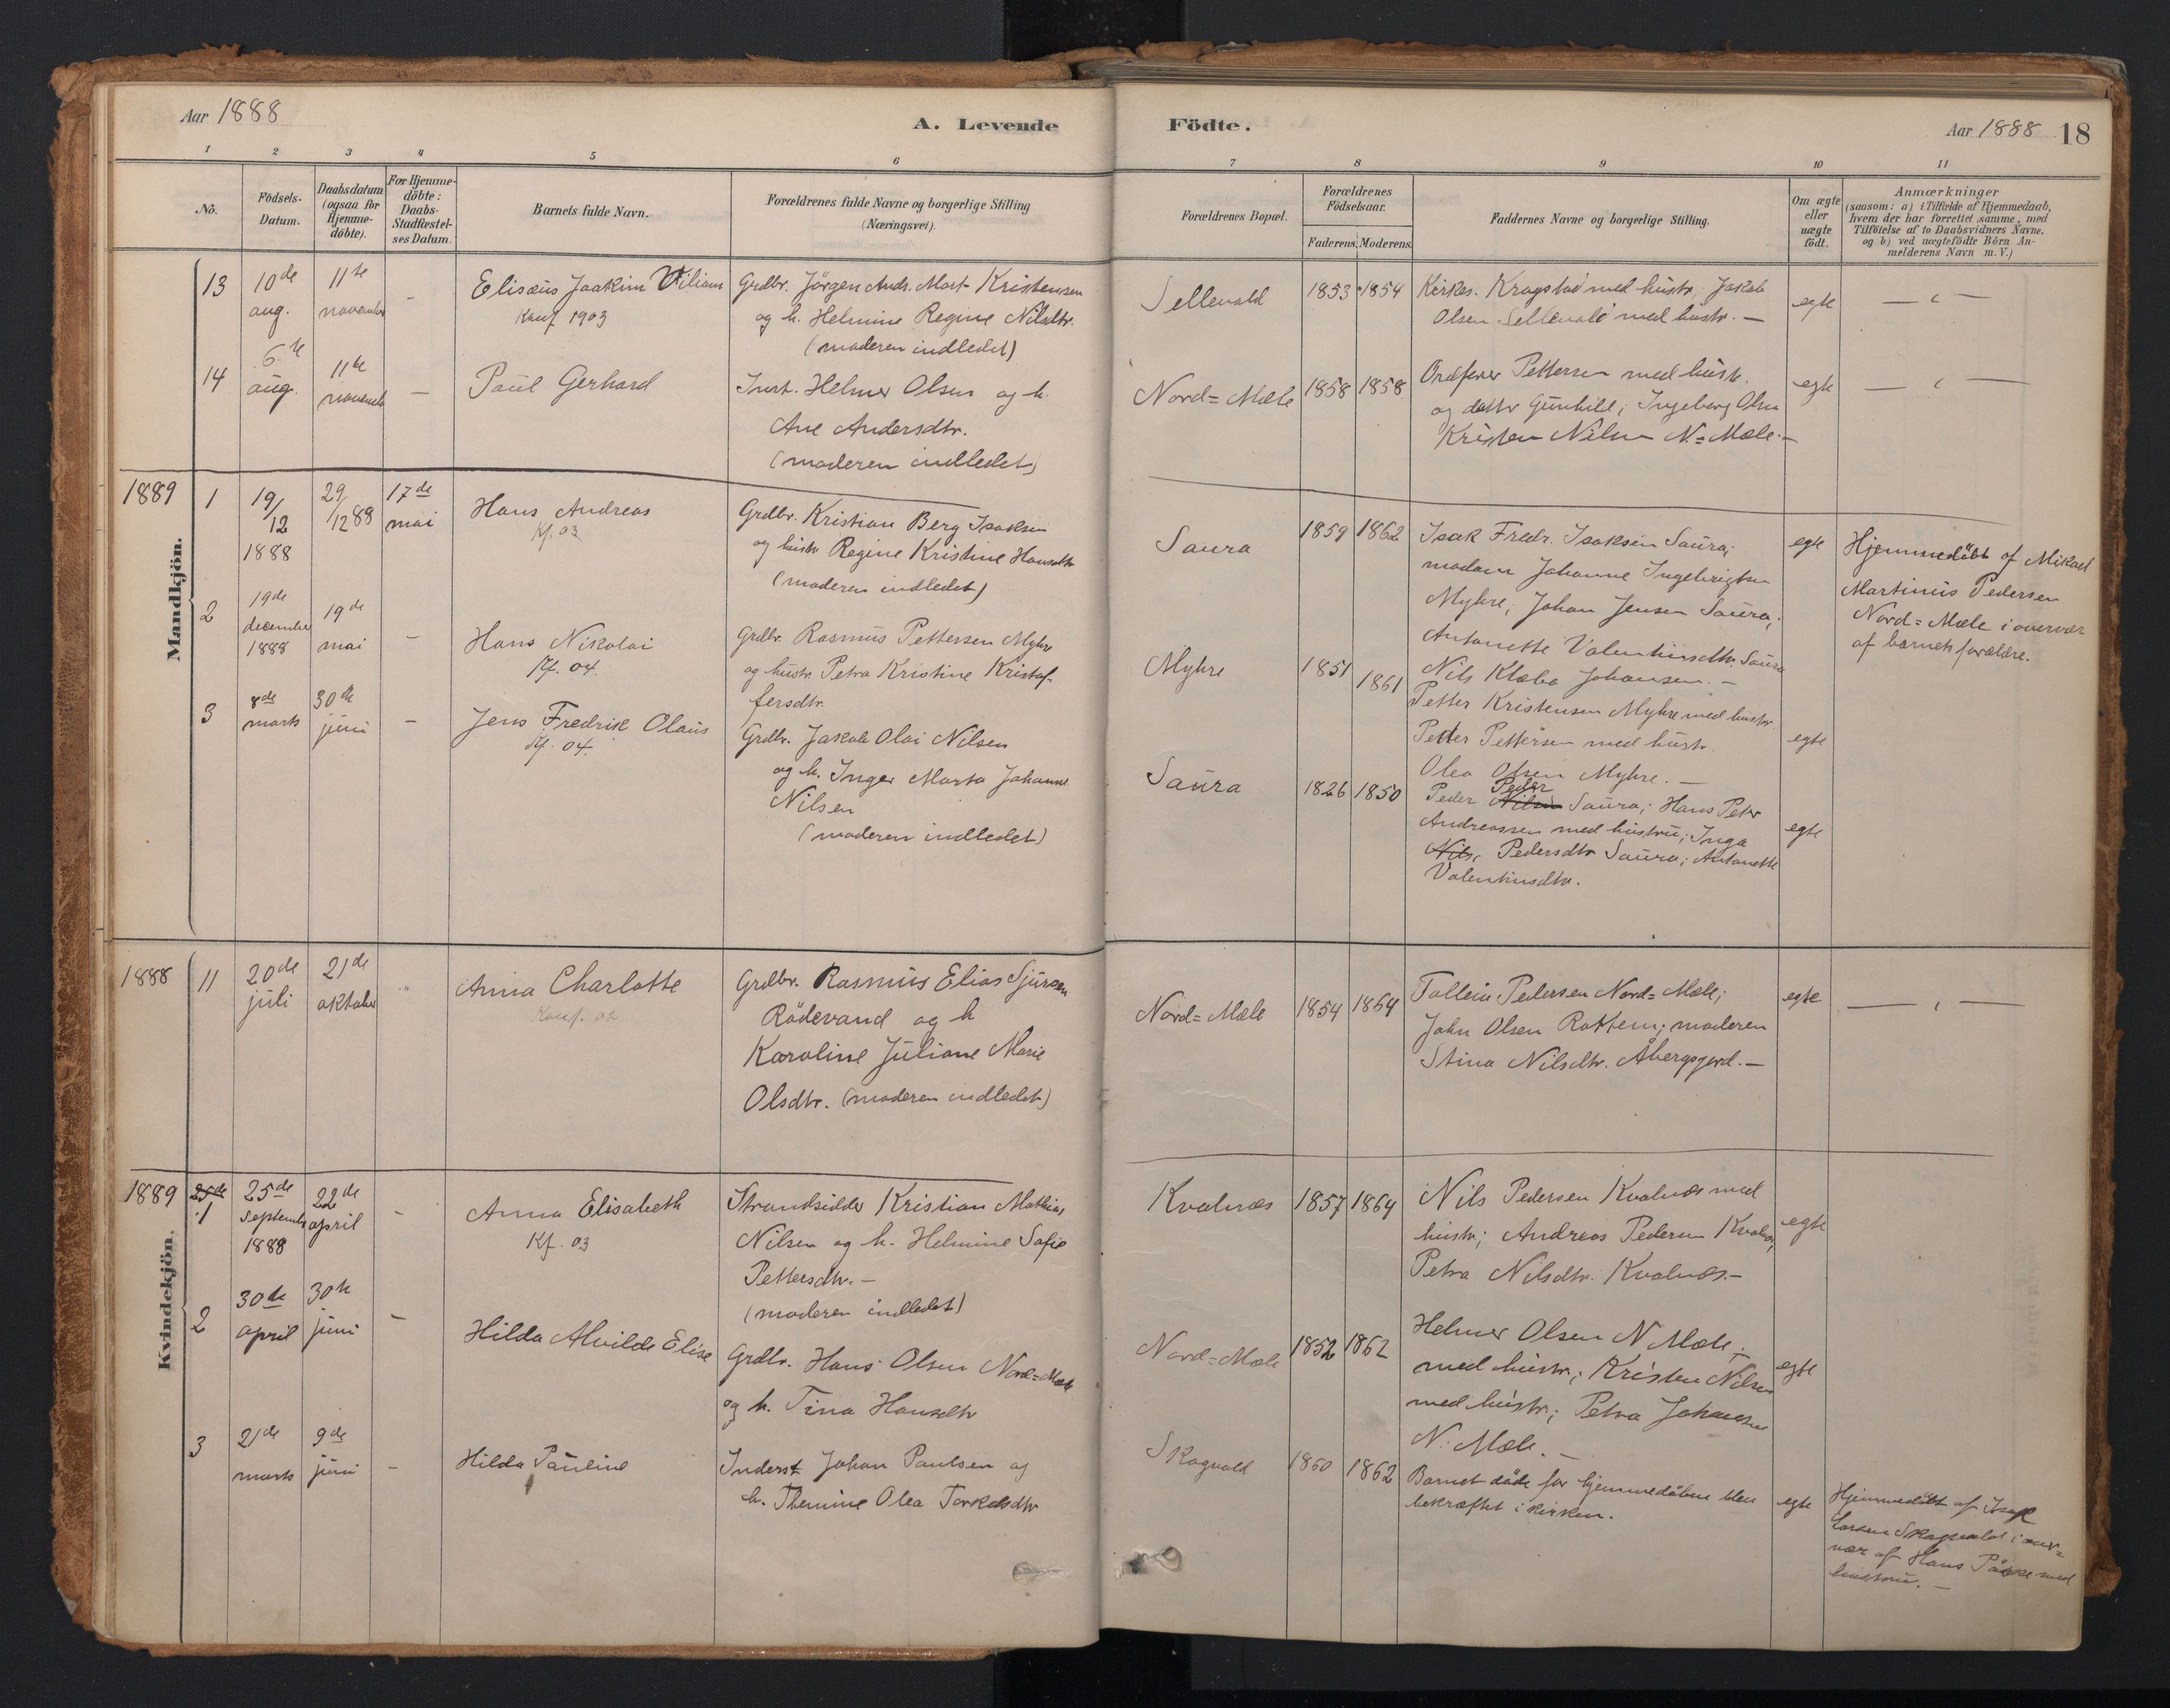 Aar 1888
A. Levende
Födte.
Aar 1888 18
1 2 3 4 5 6 7 8 9 10 11
No.
Födsels-
Datum.
Daabsdatum
(ogsaa för
Hjemme-
döbte).
For Hjemme-
döbte:
Daabs-
Stadfæstel-
ses Datum.
Barnets fulde Navn.
Forældrenes fulde Navne og borgerlige Stilling
(Næringsvei).
Forældrenes Bopæl.
Forældrenes
Födselsaar.
Faderens. Moderens.
Faddernes Navne og borgerlige Stilling.
Om ægte
eller
uægte
födt.
Anmærkninger
(saasom: a) i Tilfælde af Hjemmedaab,
hvem der har forrettet samme, med
Tilföielse af to Daabsvidners Navne,
og b) ved uægtefödte Börn An-
melderens Navn m. V.)
Mandkjön.
13
10de
aug.
11te
november
-
Elisæus Joakim Viliam
Konf 1903
Grdbr. Jörgen Andr. Mart Kristensen
og h. Helmine Regine Nilsdtr.
(moderen indledet)
Sellevold
1853 1854
Kirkes. Kragstad med hustr. Jakob
Olsen Sellevold med hustr. —
egte
14
6te
aug.
11te
november
-
Paul Gerhard
Inst. Helmer Olsen og h.
Ane Andersdtr.
(moderen indledet)
Nord=Mæle
1858 1858
Ordförer Pettersen med hustr.
og datter Gunhild; Ingeborg Olsen
Kristen Nilsen N=Mæle. —
egte
1889
1
19/12
1888
29/12 88
17de
mai
Hans Andreas
Kf. 03
Grdbr. Kristian Berg Isaksen
og hustr Regine Kristine Hansdtr
(moderen indledet)
Saura
1859 1862
Isak Fredr. Isaksen Saura;
madam Johanne Ingebrigtsen
Myhre; Johan Jensen Saura;
Antonette Valentinsdtr. Saura
Nils Klæbo Johansen. —
egte
Hjemmedöbt af Mikael
Martinus Pedersen
Nord=Mæle i overvær
af barnets forældre.
2
19de
december
1888
19de
mai
-
Hans Nikolai
Kf. 04.
Grdbr. Rasmus Pettersen Myhre
og hustr. Petra Kristine Kristof-
fersdtr.
Myhre
1851 1861
Petter Kristensen Myhre med hustr
Peder Pettersen med hustr.
Olea Olsen Myhre. —
egte
3
8de
marts
30te
juni
-
Jens Fredrik Olaus
Kf. 04.
Grdbr. Jakob Olai Nilsen
og h. Inger Marta Johanne
Nilsen
(moderen indledet)
Saura
1826 1850
Peder
Peder Nilsen Saura; Hans Peter
Andreassen med hustru; Inga
Nils. Pedersdtr Saura; Antonette
Valentinsdtr.
egte
1888
11
20de
juli
21de
oktober
"
Anna Charlotte
Konf. 02
Grdbr. Rasmus Elias Sjursen
Rödevand og h
Karoline Juliane Marie
Olsdtr. (moderen indledet)
Nord=Mæle
1854 1864
Tollein Pedersen Nord=Mæle;
John Olsen Rottem; moderen
Stina Nilsdtr. Åbergsgjerd. —
egte
Kvindekjön.
1889
25de
1
25de
september
1888
22de
april
-
Anna Elisabeth
Kf. 03
Strandsidder Kristian Mathias
Nilsen og h. Helmine Sofie
Pettersdtr. —
(moderen indledet)
Kvalnæs
1857 1864
Nils Pedersen Kvalnæs med
hustr; Andreas Pedersen Kvalnæs,
Petra Nilsdtr. Kvalnæs. —
egte
2
30te
april
30te
juni
-
Hilda Alvilde Elise
Grdbr. Hans Olsen Nord=Mæle
og h. Tina Hansdtr
Nord=Mæle
1852 1862
Helmer Olsen N Mæle;
med hustr; Kristen Nilsen
med hustr; Petra Johansen
N. Mæle. —
egte
3
21de
marts
9de
juni
-
Hilda Pauline
Inderst Johan Paulsen og
h. Themine Olea Torkelsdtr
Skogvold
1860 1862
Barnet döde för hjemmedöben blev
bekræftet i kirken.
egte
Hjemmedöbt af Isak
Larsen Skogvold i over=
vær af Hans Påske med
hustru. —